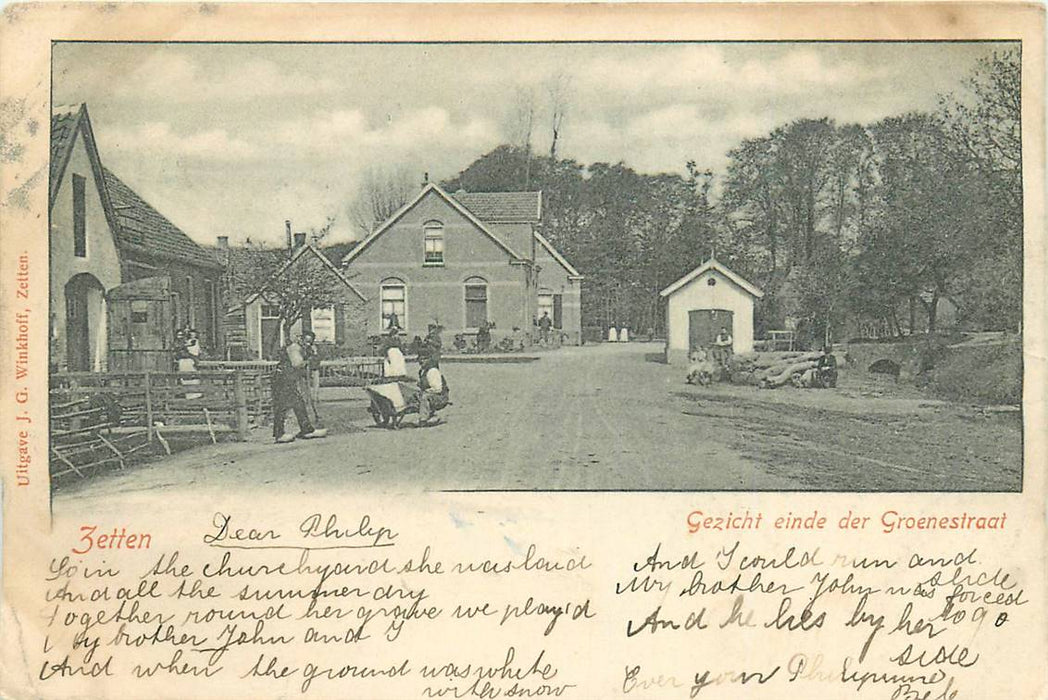 Uitgave J. G. Winkhoff, Zetten.
Zetten
Gezicht einde der Groenestraat
Dear Philip
So in the churchyard she was laid
And all the summer dry
Together round her grave we play'd
My brother John and I
And when the ground was white
with snow
And I could run and
slide
My brother John was forced
to go
And he lies by her
side
Ever your Philipmine